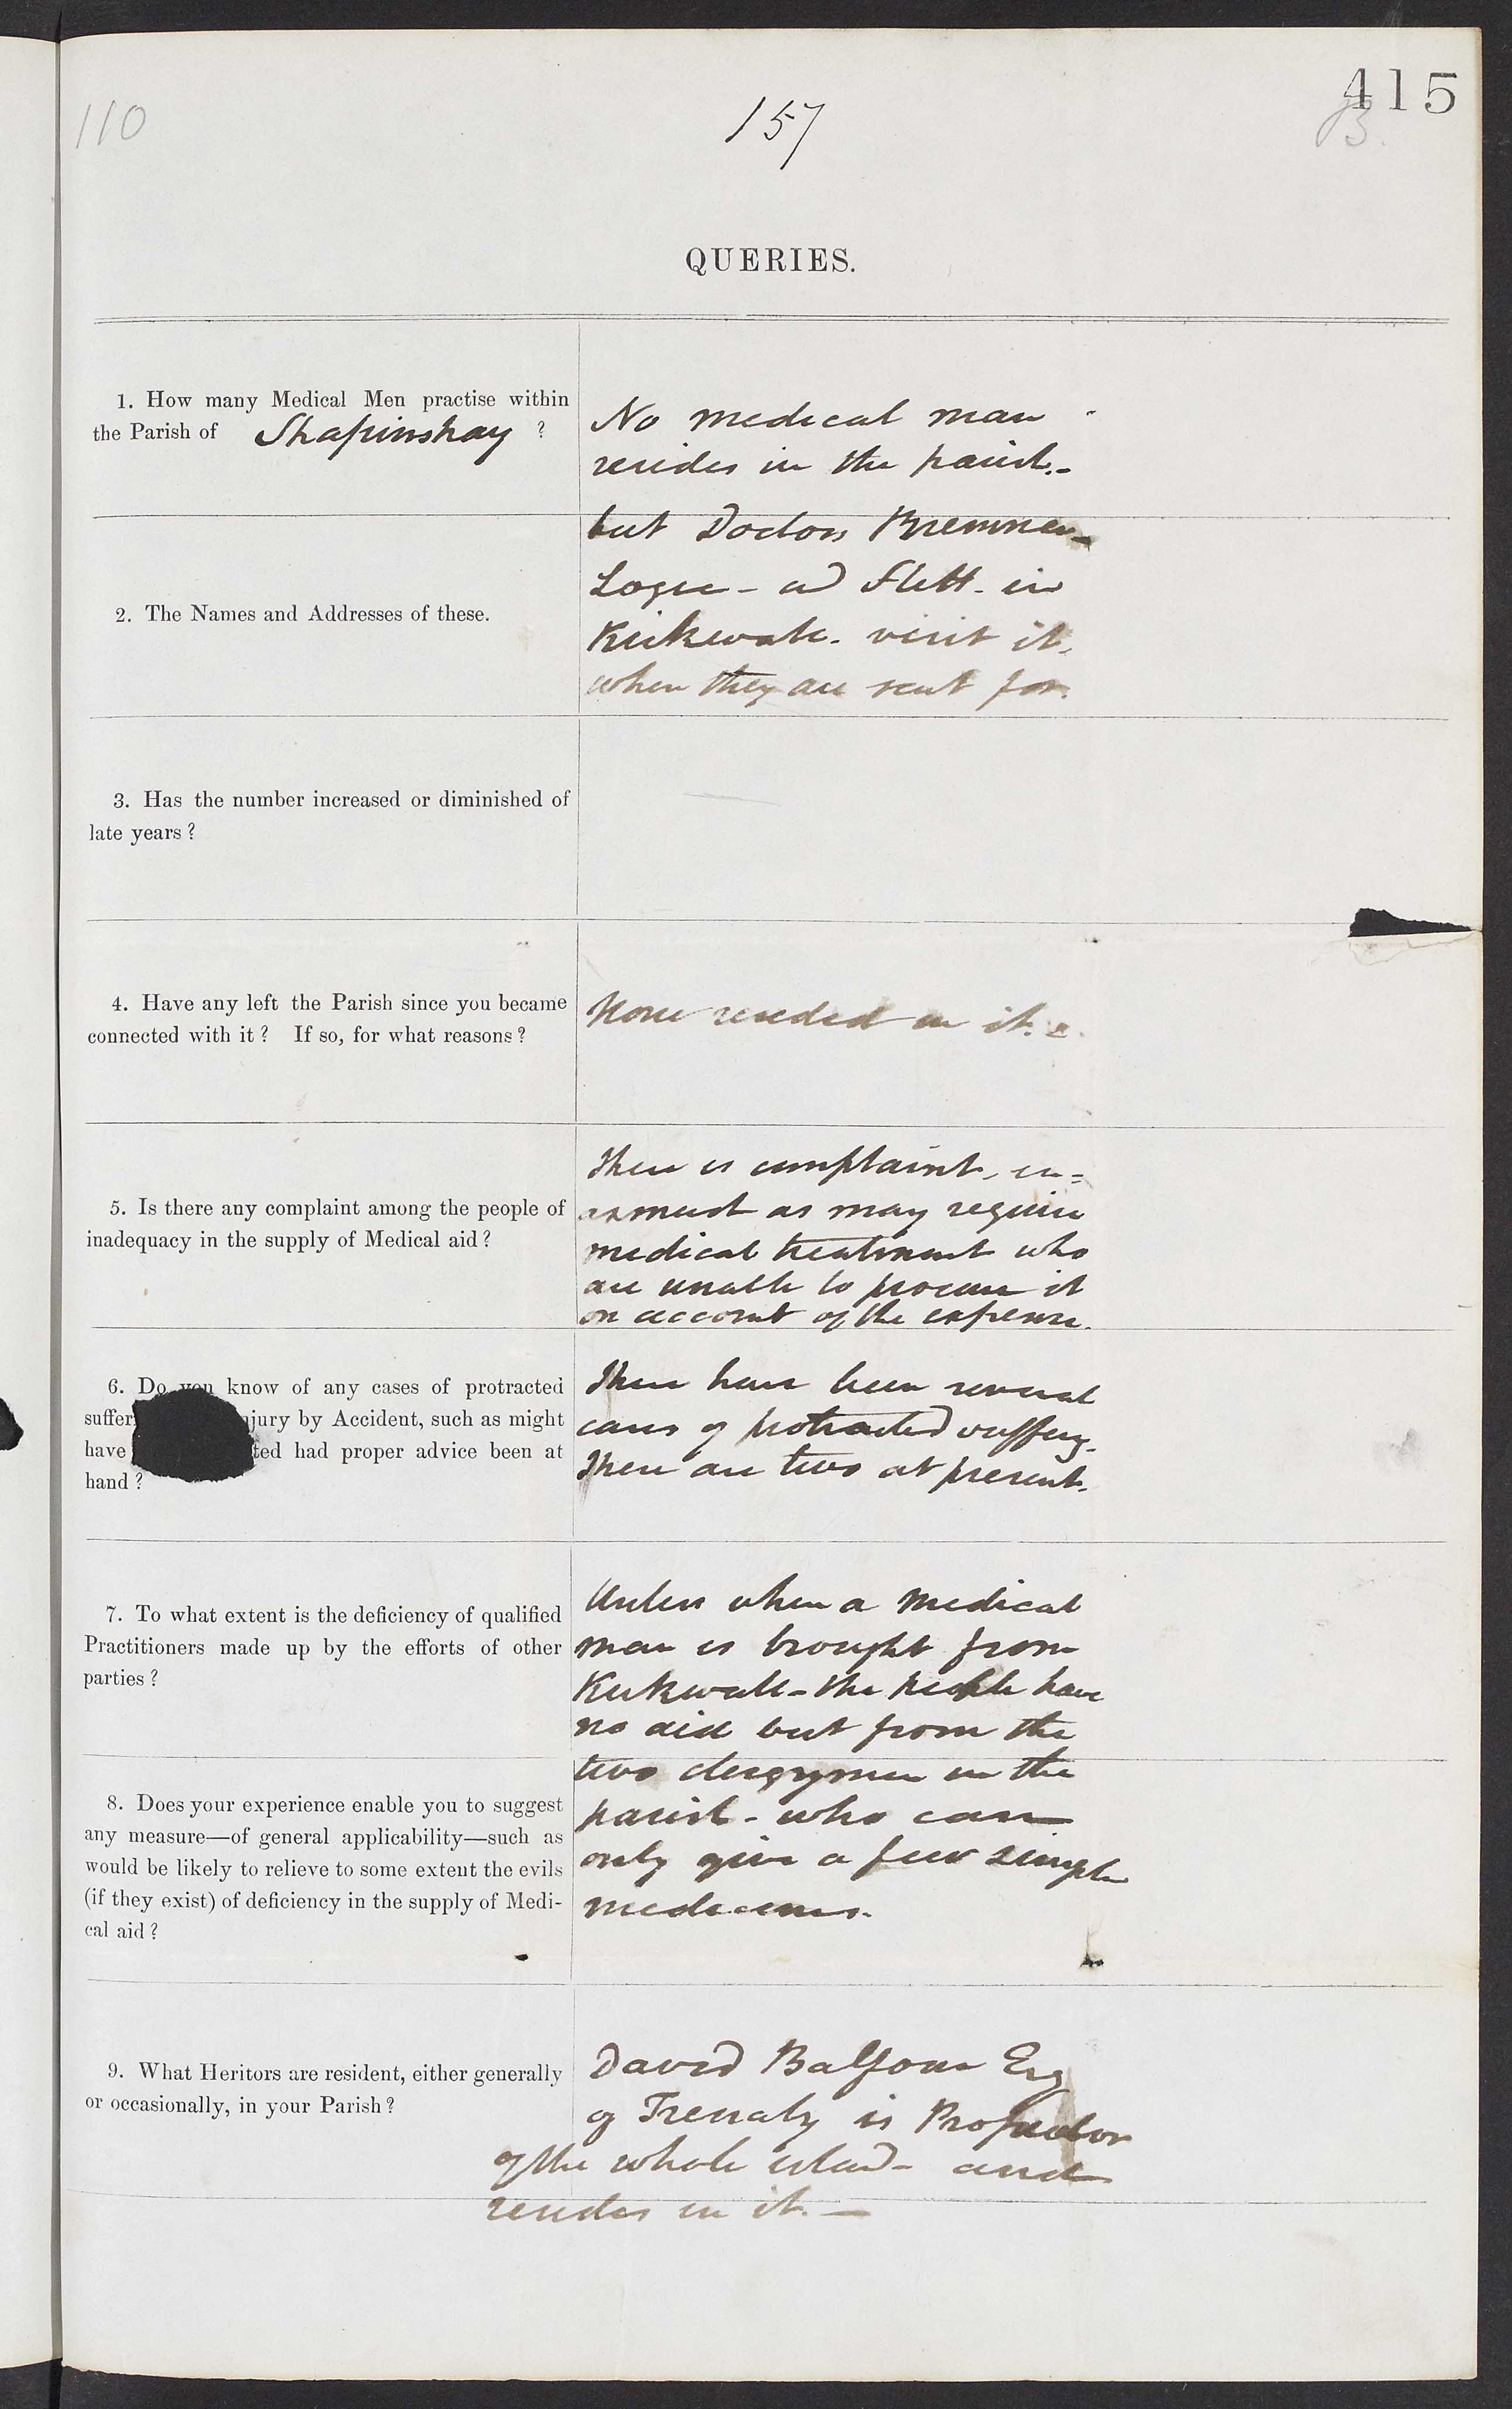 110
157
415
B.
QUERIES.
1. How many Medical Men practise within
the Parish of Shapinshay ?
No medical man
resides in the parish.-
2. The Names and Addresses of these.
but Doctors Bremner-
Logie - and Flett - in
Kirkwall - visit it,
when they are sent for.
3. Has the number increased or diminished of
late years ?
4. Have any left the Parish since you became
connected with it ? If so, for what reasons ?
None resided in it.
5. Is there any complaint among the people of
inadequacy in the supply of Medical aid ?
There is complaint, in=
asmuch as may require
medical treatment who
are unable to procure it
on account of the expense.
6. Do you know of any cases of protracted
suffer jury by Accident, such as might
have ted had proper advice been at
hand ?
There have been several
cases of protracted suffering.
There are two at present.
7. To what extent is the deficiency of qualified
Practitioners made up by the efforts of other
parties ?
Unless when a medical
man is brought from
Kirkwall - the people have
no aid but from the
two clergymen in the
parish - who can
only give a few simple
medicines.
8. Does your experience enable you to suggest
any measure—of general applicability—such as
would be likely to relieve to some extent the evils
(if they exist) of deficiency in the supply of Medi-
cal aid ?
9. What Heritors are resident, either generally
or occasionally, in your Parish ?
David Balfour Esq
of Trenaby is Proprietor
of the whole island - and
resides in it. —